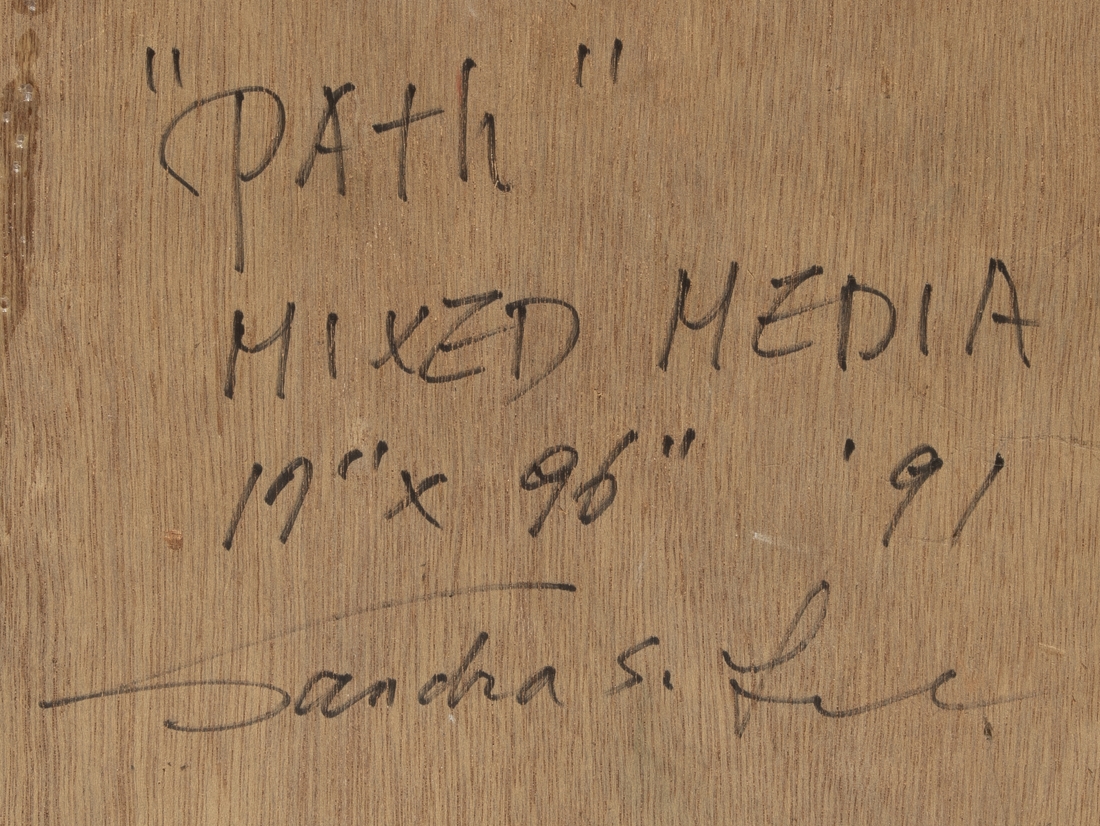 "PATh"
MIXED MEDIA
17" x 96" '91
Sandra S. Lee